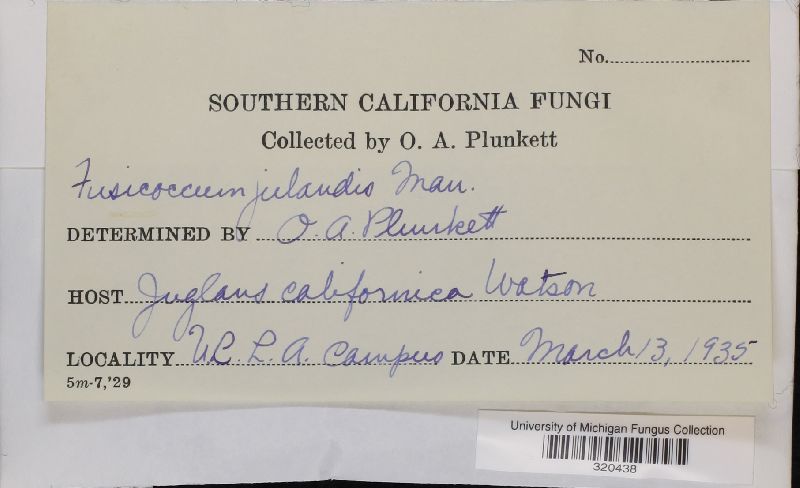 No.
SOUTHERN CALIFORNIA FUNGI
Collected by O. A. Plunkett
Fusicoccum julandis Mau.
DETERMINED BY O. A. Plunkett
HOST Juglans californica Watson
LOCALITY U.C.L.A. Campus DATE March 13, 1935
5m-7,'29
University of Michigan Fungus Collection
320438